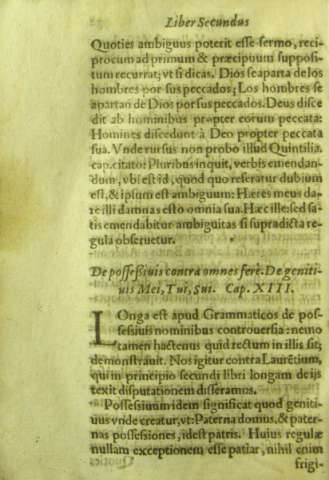 Liber Secundus
Quoties ambiguus poterit esse sermo, reci-
procum ad primum & præcipuum supposi-
tum recurrat; vt si dicas. Dios se aparta de los
hombres por sus peccados; Los hombres se
apartan de Dios por sus peccados. Deus disce
dit ab hominibus propter eorum peccata:
Homines discedunt à Deo propter peccata
sua. Vnde rursus non probo illud Quintilia.
cap. citato: Pluribus inquit, verbis emendan-
dum, vbi est id, quod quo referatur dubium
est, & ipsum est ambiguum: Hæres meus da-
re illi damnas esto omnia sua. Hæc ille: sed sa-
tis emendabitur ambiguitas si supradicta re-
gula obseruetur.
De possessiuis contra omnes fere. De geniti-
uis Mei, Tui, Sui. Cap. XIII.
LOnga est apud Grammaticos de pos-
sessiuis nominibus controuersia: nemo
tamen hactenus quid rectum in illis sit;
demonstrauit. Nos igitur contra Laurẽtium,
qui in principio secundi libri longam de ijs
texit disputationem disseramus.
Possessiuum idem significat quod geniti-
uus vnde creatur, vt: Paterna domus, & pater-
nas possessiones, id est patris. Huius regulæ
nullam exceptionem esse patiar, nihil enim
frigi-